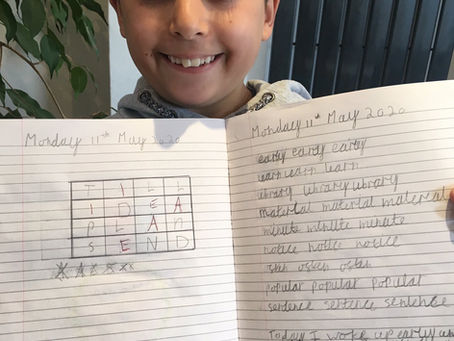 Monday 11th May 2020
T I L L
I D E A
P L A N
S E N D
Monday 11th May 2020
early early early
learn learn learn
library library library
material material material
minute minute minute
notice notice notice
popular popular popular
sentence sentence sentence
Today I woke up early